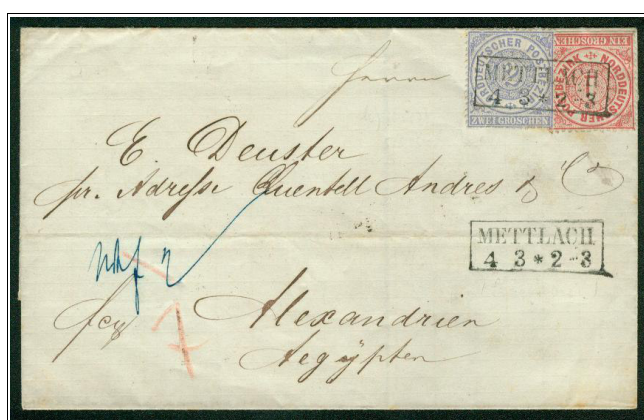 NORDDEUTSCHER POSTBEZIRK
ZWEI GROSCHEN
EIN GROSCHEN
NORDDEUTSCHER POSTBEZIRK
METTLACH
4 3 * 2-3
Herrn
E. Deuster
pr. Adresse Quentell Andres & Co
METTLACH
4 3 * 2-3
7
Alexandrien
Aegÿpten